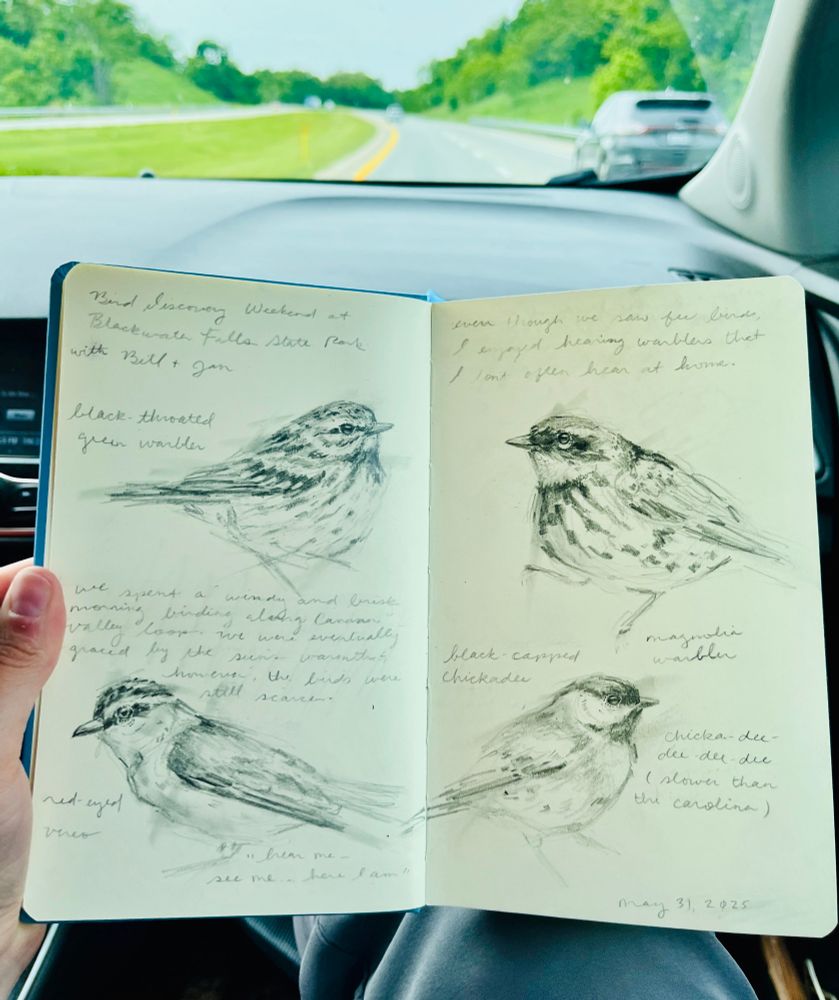 Bird Discovery Weekend at
Blackwater Falls State Park
with Bill + Jan
black-throated
green warbler
we spent a windy and brisk
morning birding along Canaan
valley loop. we were eventually
graced by the sun's warmth;
however, the birds were
still scarce.
red-eyed
vireo
"hear me-
see me.. here I am"
even though we saw few birds,
I enjoyed hearing warblers that
I dont often hear at home.
magnolia
warbler
black-capped
chickadee
chicka-dee-
dee-dee-dee
(slower than
the carolina)
may 31, 2025